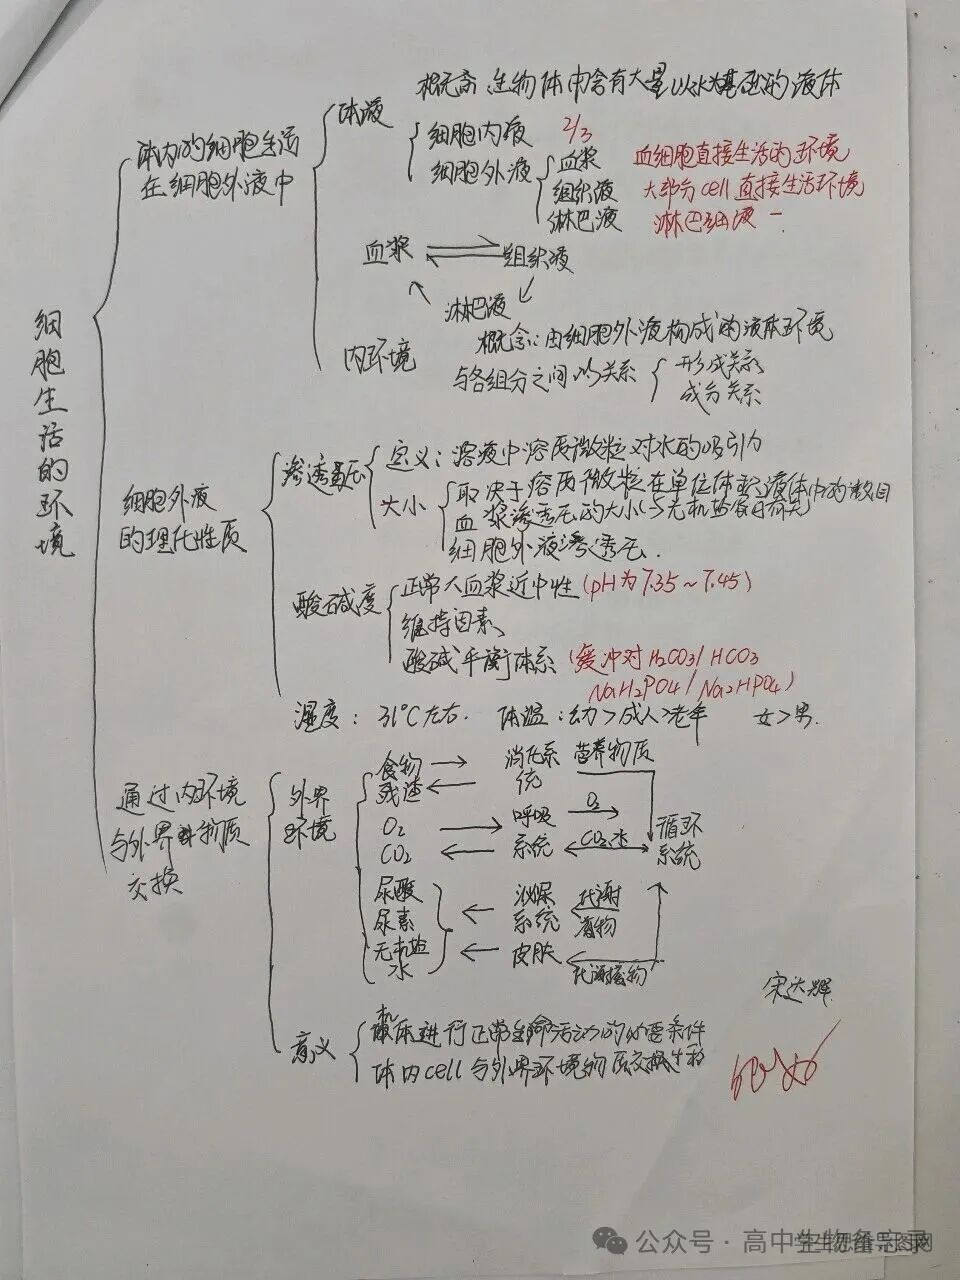 概念：生物体中含有大量以水为基础的液体
体液
细胞内液 2/3
体内的细胞生活
在细胞外液中
细胞外液
血浆 血细胞直接生活的环境
组织液 大部分cell直接生活环境
淋巴液 淋巴细液 一
血浆 组织液
淋巴液
内环境
概念：由细胞外液构成的液体环境
与各组分之间的关系
形成关系
成分关系
细胞生活的环境
细胞外液
的理化性质
渗透压
定义：溶液中溶质微粒对水的吸引力
大小
取决于溶质微粒在单位体积液体中的数目
血浆渗透压的大小与无机盐蛋白有关
细胞外液渗透压.
酸碱度
正常人血浆近中性(pH为7.35~7.45)
维持因素
酸碱平衡体系(缓冲对H2CO3/HCO3
NaH2PO4/Na2HPO4)
温度：37°C左右. 体温：幼>成人>老年 女>男.
通过内环境
与外界物质
交换
外界
环境
食物
残渣
消化系
统
营养物质
O2
CO2
呼吸
系统
O2
CO2.水
循环
系统
尿酸
尿素
无机盐
水
泌尿
系统
代谢
废物
皮肤
代谢废物
意义
机体进行正常生命活动的必要条件
体内cell与外界环境物质交换过程
宋达辉
公众号·高中生物备忘录